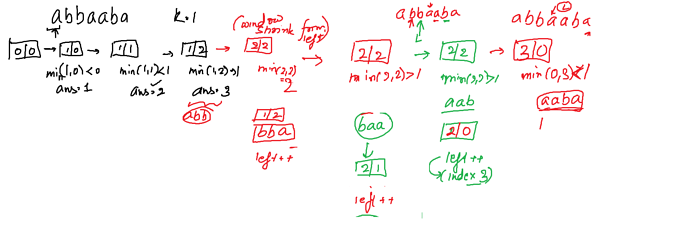 abbaaba K=1
0|0 → 1|0 → 1|1 → 1|2 → 2|2
(window shrink from left)
min(1,0)<0
ans=1
min(1,1)<1
ans=2
min(1,2)=1
ans=3
abb
min(2,2)
=2
1|2
bba
left++
abbaaba
2|2 → 2|2 → 3|0
min(2,2)>1
baa
2|1
left++
min(2,2)>1
aab
2|0
left++
(index 3)
abbaaba
min(0,3)<1
aaba